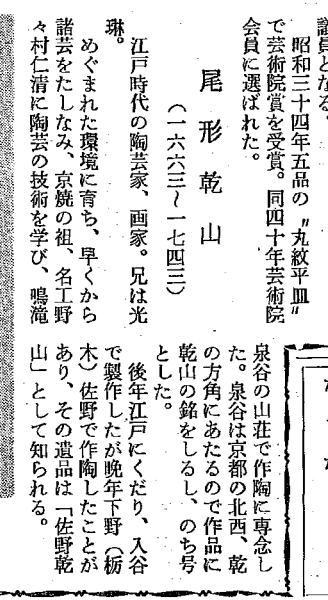 議員となる。
昭和三十四年五品の〝丸紋平皿〟
で芸術院賞を受賞。同四十年芸術院
会員に選ばれた。
尾形乾山
(一六六三〜一七四三)
江戸時代の陶芸家、画家。兄は光
琳。
めぐまれた環境に育ち、早くから
諸芸をたしなみ、京焼の祖、名工野
々村仁清に陶芸の技術を学び、鳴滝
泉谷の山荘で作陶に専念し
た。泉谷は京都の北西、乾
の方角にあたるので作品に
乾山の銘をしるし、のち号
とした。
後年江戸にくだり、入谷
で製作したが晩年下野(栃
木)佐野で作陶したことが
あり、その遺品は「佐野乾
山」として知られる。